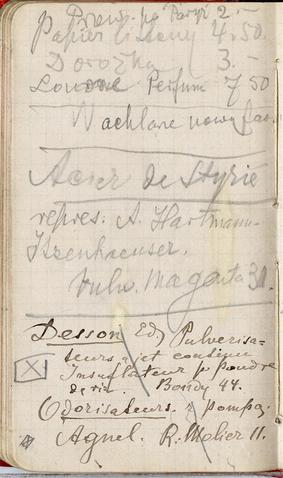 p. Brons. pg Paryż 2.-
Papier listowy 4.50.
Dorożka 3.-
Londone Perfum 7 50
Wachlarz nowy fas.
Acier de Styrie
repres: A. Hartmann-
Itzenhaeuser.
Bulw. Magenta 31.
Desson Ed, Pulverisa-
teurs à jet continu
Insuflateur p. Poudre
de riz. Bondy 44.
Odorisateurs. z pompą.
Agnel. R. Molier 11.